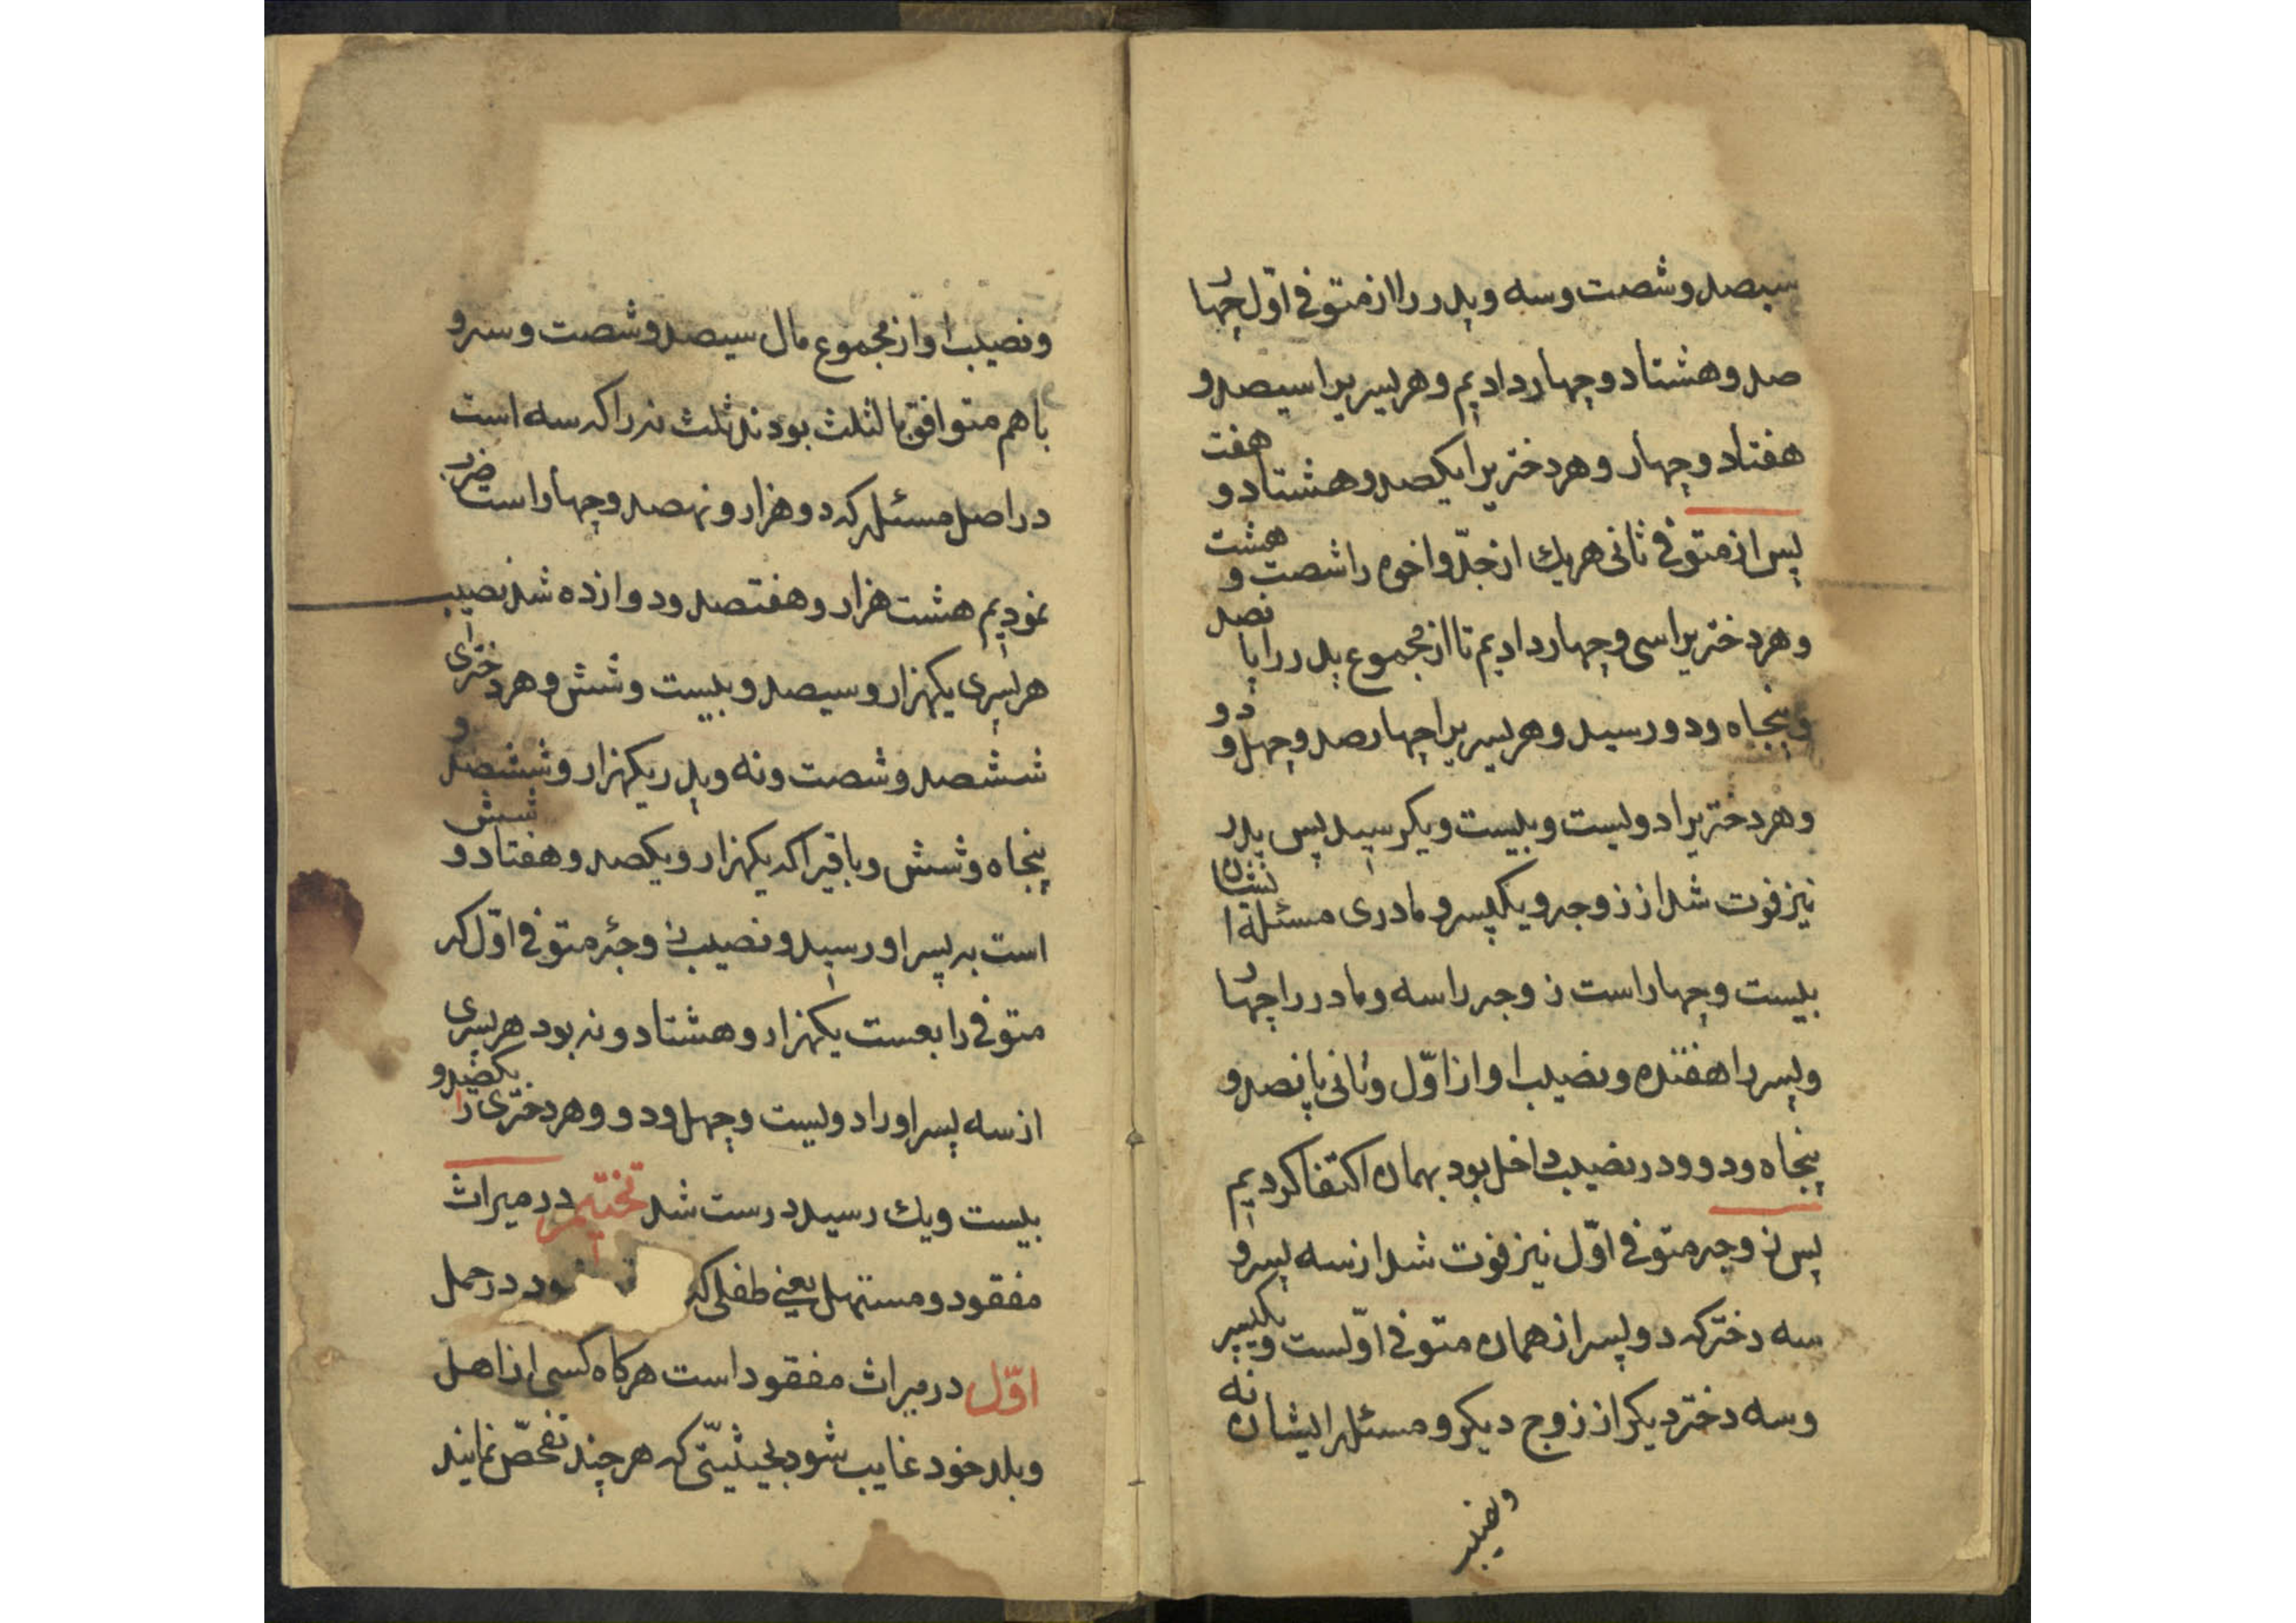 سیصد و شصت و سه و پدر را از متوفی اوّل چهار
صد و هشتاد و چهار دادیم و هر پسریرا سیصد و
هفتاد و چهار و هر دختریرا یکصد و هشتاد و هفت
پس از متوفی ثانی هر یك از جدّ و اخوه را شصت و هشت
و هر دختریرا سی و چهار دادیم تا از مجموع پدر را پانصد
و پنجاه و دو رسید و هر پسریرا چهار صد و چهل و دو
و هر دختریرا دویست و بیست و یکرسید پس پدر
نیز فوت شد از زوجه و یکپسر و مادری مسئله ایشان
بیست و چهار است زوجه را سه و مادر را چهار
و پسر را هفتده و نصیب او از اوّل و ثانی پانصد و
پنجاه و دو و در نصیب داخل بود بهمان اکتفا کردیم
پس زوجه متوفی اوّل نیز فوت شد از سه پسر و
سه دختر که دو پسر از همان متوفی اوّلست و یکپسر
و سه دختر دیکر از زوج دیکر و مسئله ایشان نه
و نصیب
و نصیب او از مجموع مال سیصد و شصت و سه و
با هم متوافق بالثلث بودند ثلث نه را که سه است
در اصل مسئله که دو هزار و نهصد و چهار است ضرب
نمودیم هشت هزار و هفتصد و دوازده شد نصیب
هر پسری یکهزار و سیصد و بیست و شش و هر دختری
ششصد و شصت و نه و پدر یکهزار و ششصد و
پنجاه و شش و باقیرا که یکهزار و یکصد و هفتاد و شش
است به پسر او رسید و نصیب زوجۀ متوفی اوّل که
متوفی رابعست یکهزار و هشتاد و نه بود هر پسری
از سه پسر او را دویست و چهل و دو و هر دختری را یکصد و
بیست و یك رسید درست شد تختیم در میراث
مفقود و مستهل یعنی طفلی که ود در حمل
اوّل در میراث مفقود است هرکاه کسی از اهل
و بلد خود غایب شود بحیثیتی که هر چند تفحّص نمایند